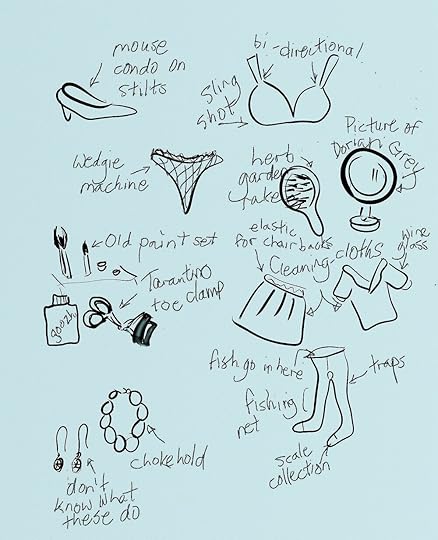 mouse
condo on
stilts
bi-directional
sling
shot
wedgie
machine
herb
garden
rake
Picture of
Dorian Grey
Old paint set
Tarantino
toe clamp
elastic
for chair backs
Cleaning cloths
wine
glass
fish go in here
traps
fishing
net
scale
collection
chokehold
don't
know what
these do